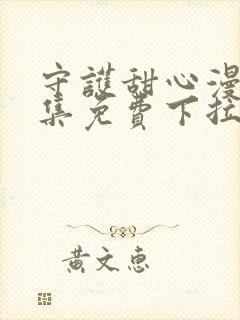 守護甜心漫
集免費下拉
黃文惠